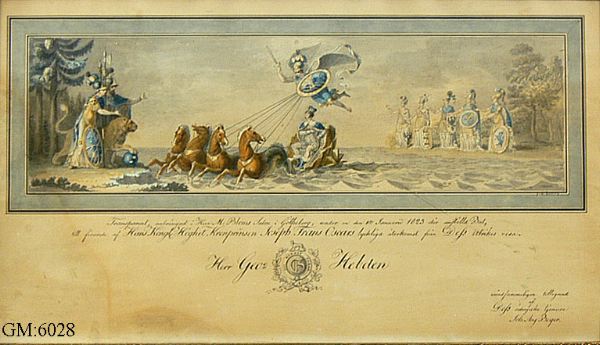 Transparent, anbringad i Herr M. Prens Salon i Götheborg, under en den 1ste Januarii 1823 der anställd Bal,
till firande af Hans Kongl. Höghet Kronprinsen Joseph Frans Oscars lyckliga återkomst från Dess utrikes resa.
Herr Geo: Helden
tillegnad
af
Dess ödmjuke Tjenare
Joh. Aug. Beyer.
GM:6028